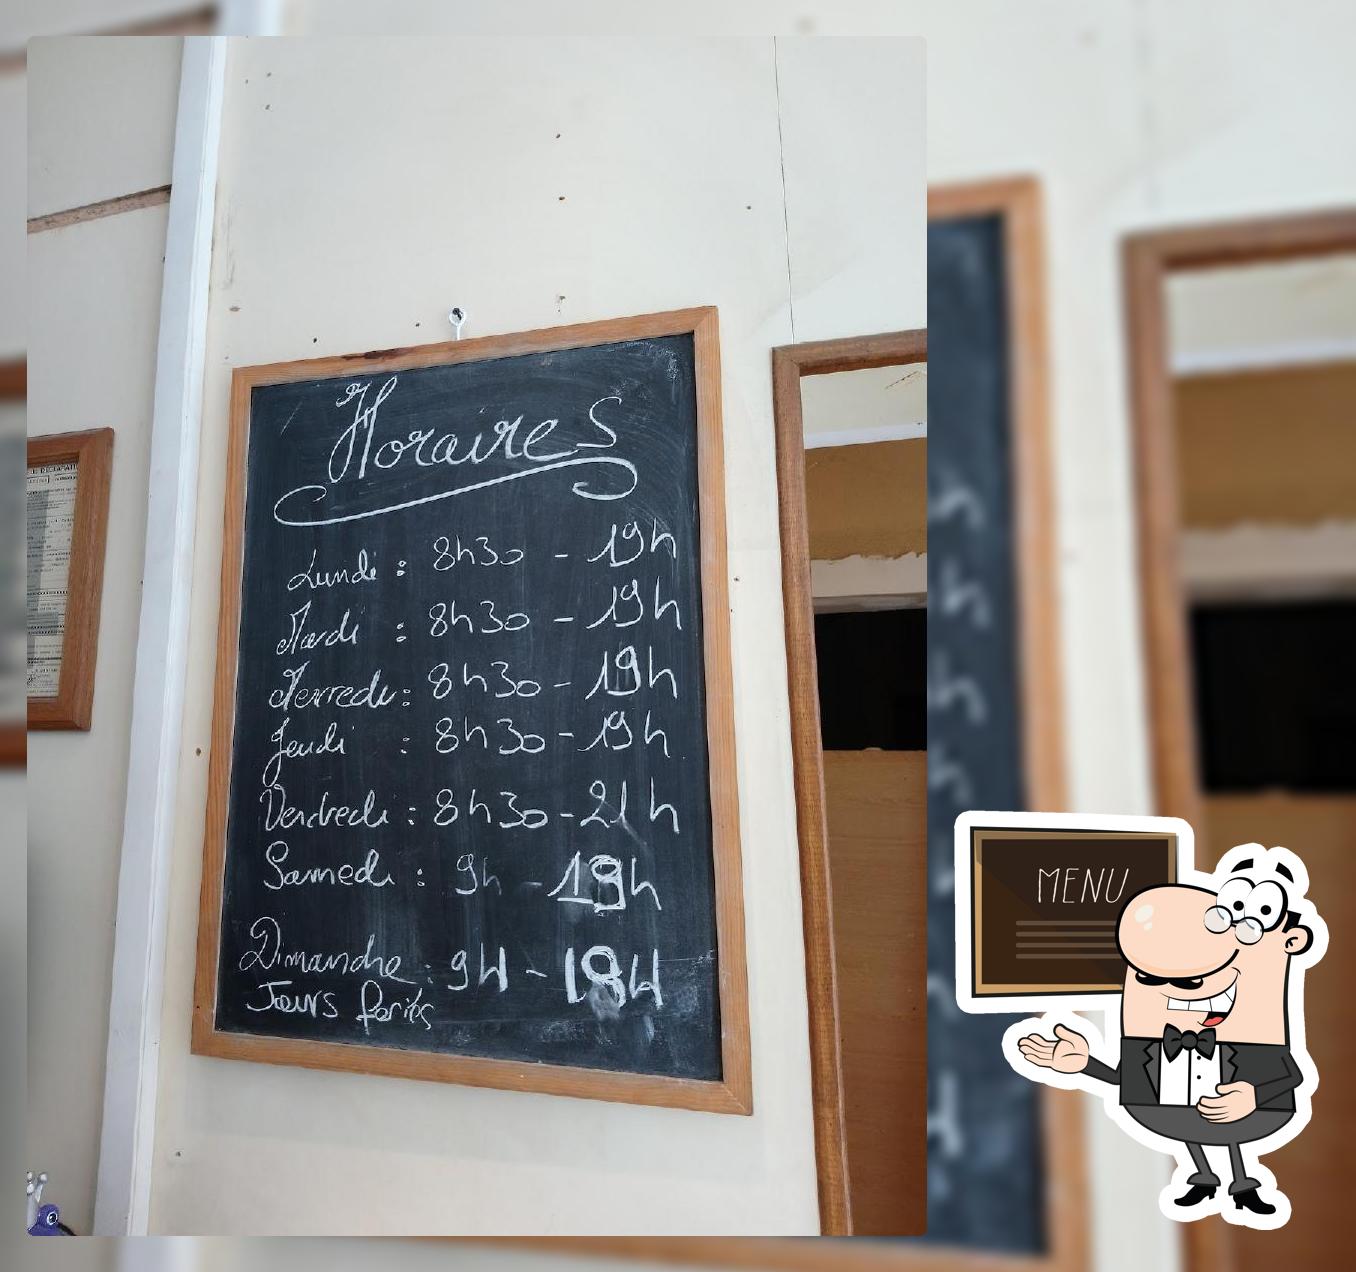 Horaires
Lundi : 8h30 - 19h
Mardi : 8h30 - 19h
Mercredi : 8h30 - 19h
Jeudi : 8h30 - 19h
Vendredi : 8h30 - 21h
Samedi : 9h - 19h
Dimanche : 9H - 18H
Jours feriés
MENU